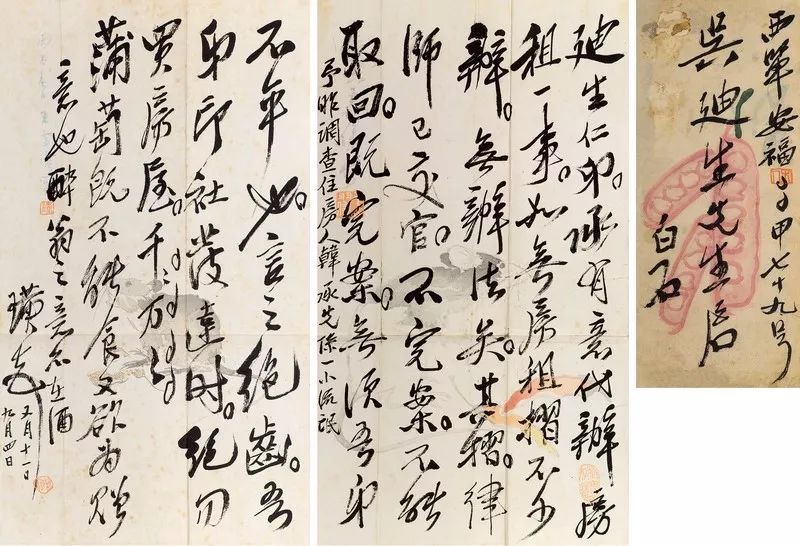 西單安福
甲七十九号
吳迪生先生啟
白石
迪生仁弟。承有意代辦房
租一事。如無房租摺不少
辦。無辦法矣。其摺。律
師已交官。不完案。不能
取回。既完案。無須吾弟
予昨調查住房人韓承先係小流氓
不平也。言之絕齒。吾
弟印社發達時。絕勿
買房屋。千万
蒲萄既不能食又欲為贈
意也醉翁之意不在酒
璜
又月十一日
九月四日